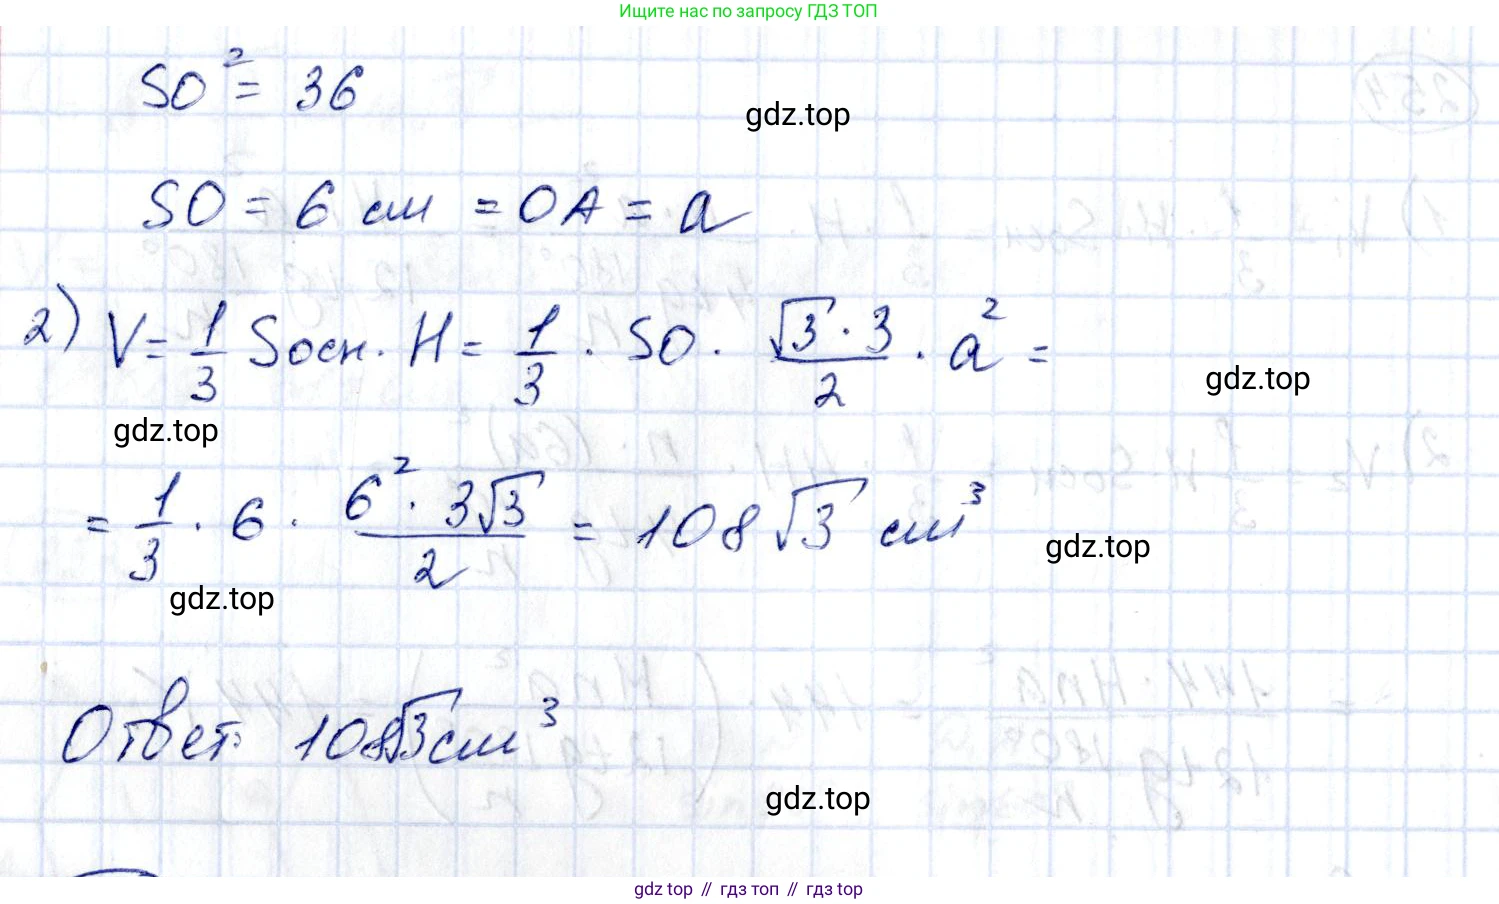 Ищите нас по запросу ГДЗ ТОП
SO² = 36
gdz.top
SO = 6 см = OA = a
2) V = 1/3 Sосн. · H = 1/3 · SO · √3 · 3/2 · a² =
gdz.top
gdz.top
= 1/3 · 6 · 6² · 3√3/2 = 108√3 см³
gdz.top
gdz.top
Ответ: 108√3 см³
gdz.top
gdz top // гдз топ // гдз top